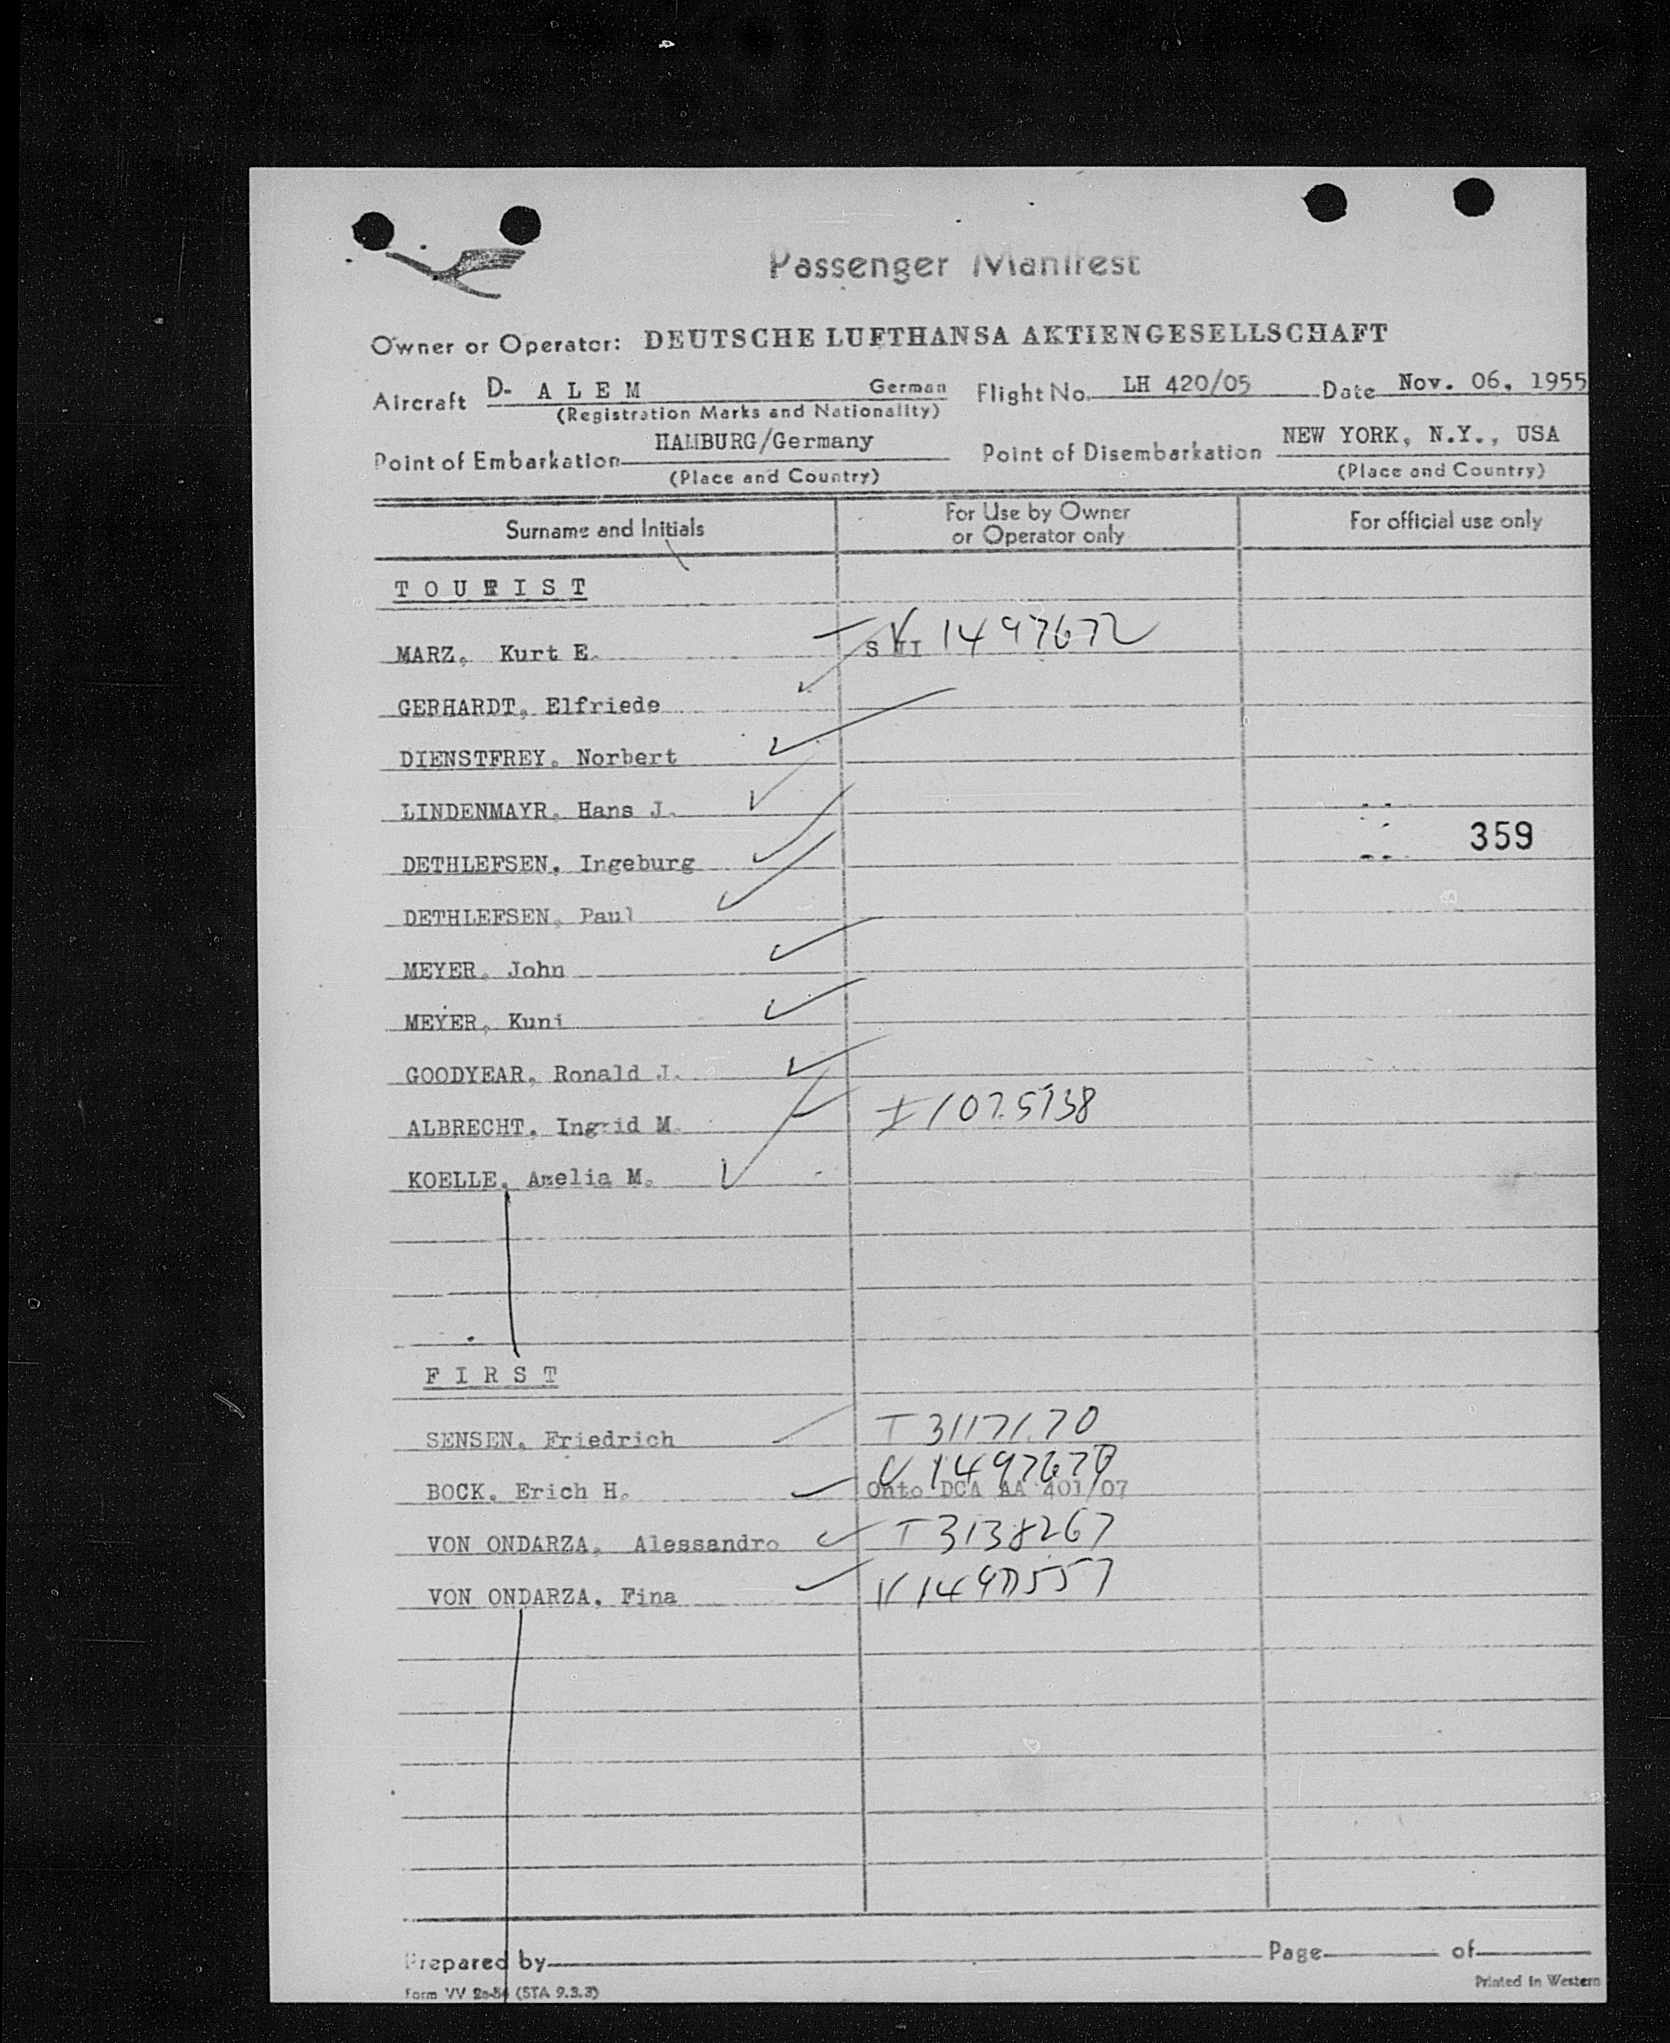 Passenger Manifest
Owner or Operator: DEUTSCHE LUFTHANSA AKTIENGESELLSCHAFT
Aircraft D- A L E M German Flight No. LH 420/05 Date Nov. 06, 1955
(Registration Marks and Nationality)
Point of Embarkation HAMBURG/Germany Point of Disembarkation NEW YORK, N.Y., USA
(Place and Country) (Place and Country)
Surname and Initials For Use by Owner or Operator only For official use only
T O U R I S T
MARZ, Kurt E. V 1497672
GERHARDT, Elfriede
DIENSTFREY, Norbert
LINDENMAYR, Hans J.
359
DETHLEFSEN, Ingeburg
DETHLEFSEN, Paul
MEYER, John
MEYER, Kuni
GOODYEAR, Ronald J.
ALBRECHT, Ingrid M. I 1075738
KOELLE, Amelia M.
F I R S T
SENSEN, Friedrich T 3117170
V 1497670
BOCK, Erich H. Onto DCA AA 401/07
VON ONDARZA, Alessandro T 3138267
VON ONDARZA, Fina V 1497557
Prepared by Page of
Form VV 2a-54 (STA 9.3.3) Printed in Western